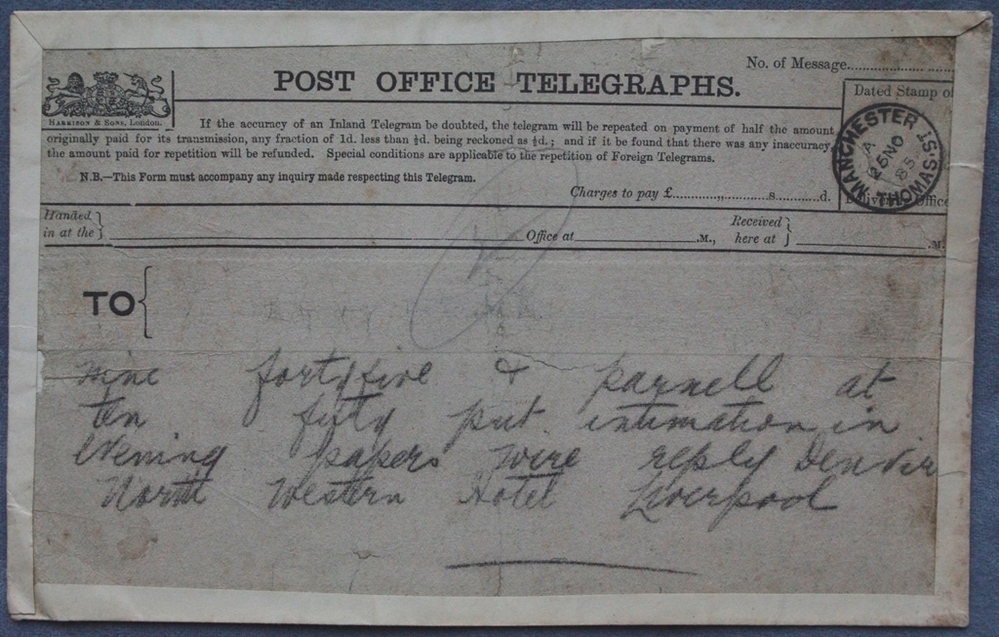 POST OFFICE TELEGRAPHS.
No. of Message
HARRISON & SONS, London.
Dated Stamp of
If the accuracy of an Inland Telegram be doubted, the telegram will be repeated on payment of half the amount
originally paid for its transmission, any fraction of 1d. less than ½d. being reckoned as ½d.; and if it be found that there was any inaccuracy,
the amount paid for repetition will be refunded. Special conditions are applicable to the repetition of Foreign Telegrams.
N.B.—This Form must accompany any inquiry made respecting this Telegram.
MANCHESTER
A
25 NO
85
THOMAS. ST
Charges to pay £ s d.
Office
Handed
in at the
Office at M.,
Received
here at M.
TO
Nine fortyfive & parnell at
ten fifty put intimation in
Evening papers wire reply Denvir
North Western Hotel Liverpool